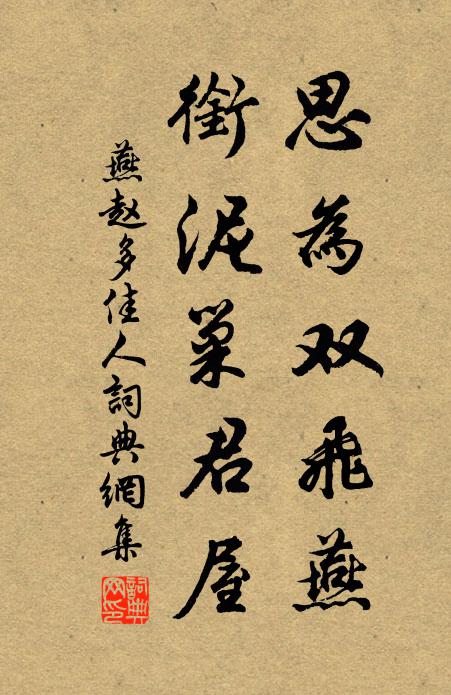 思為双飛燕
銜泥巢君屋
燕赵多佳人詞典網集
詞典网印